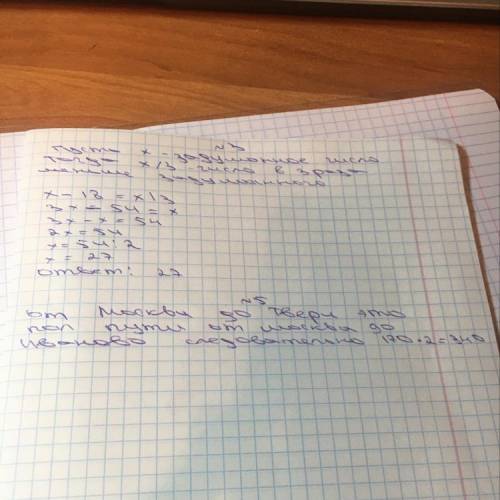 ~3
Пусть x - задуманное число
тогда x/3 - число в 3 раза
меньше задуманного
x - 18 = x/3
3x - 54 = x
3x - x = 54
2x = 54
x = 54 : 2
x = 27
ответ: 27
~5
от Москвы до Твери это
пол пути от Москва до
Иваново следовательно 170 • 2 = 340